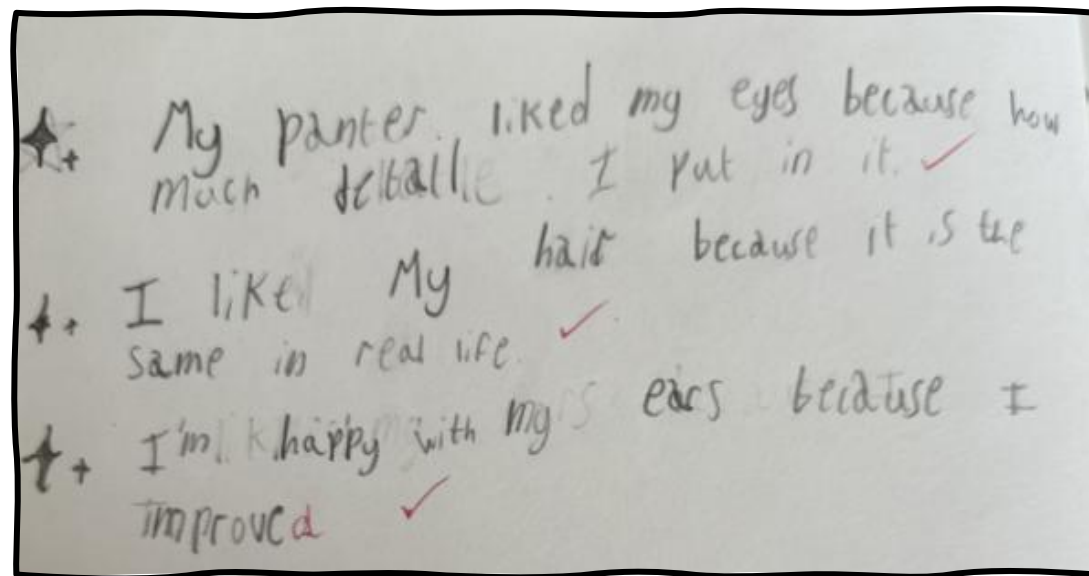 My panter. liked my eyes because how
much detaill. I put in it.
I like My hair because it is the
same in real life.
I'm happy with my ears because I
improved